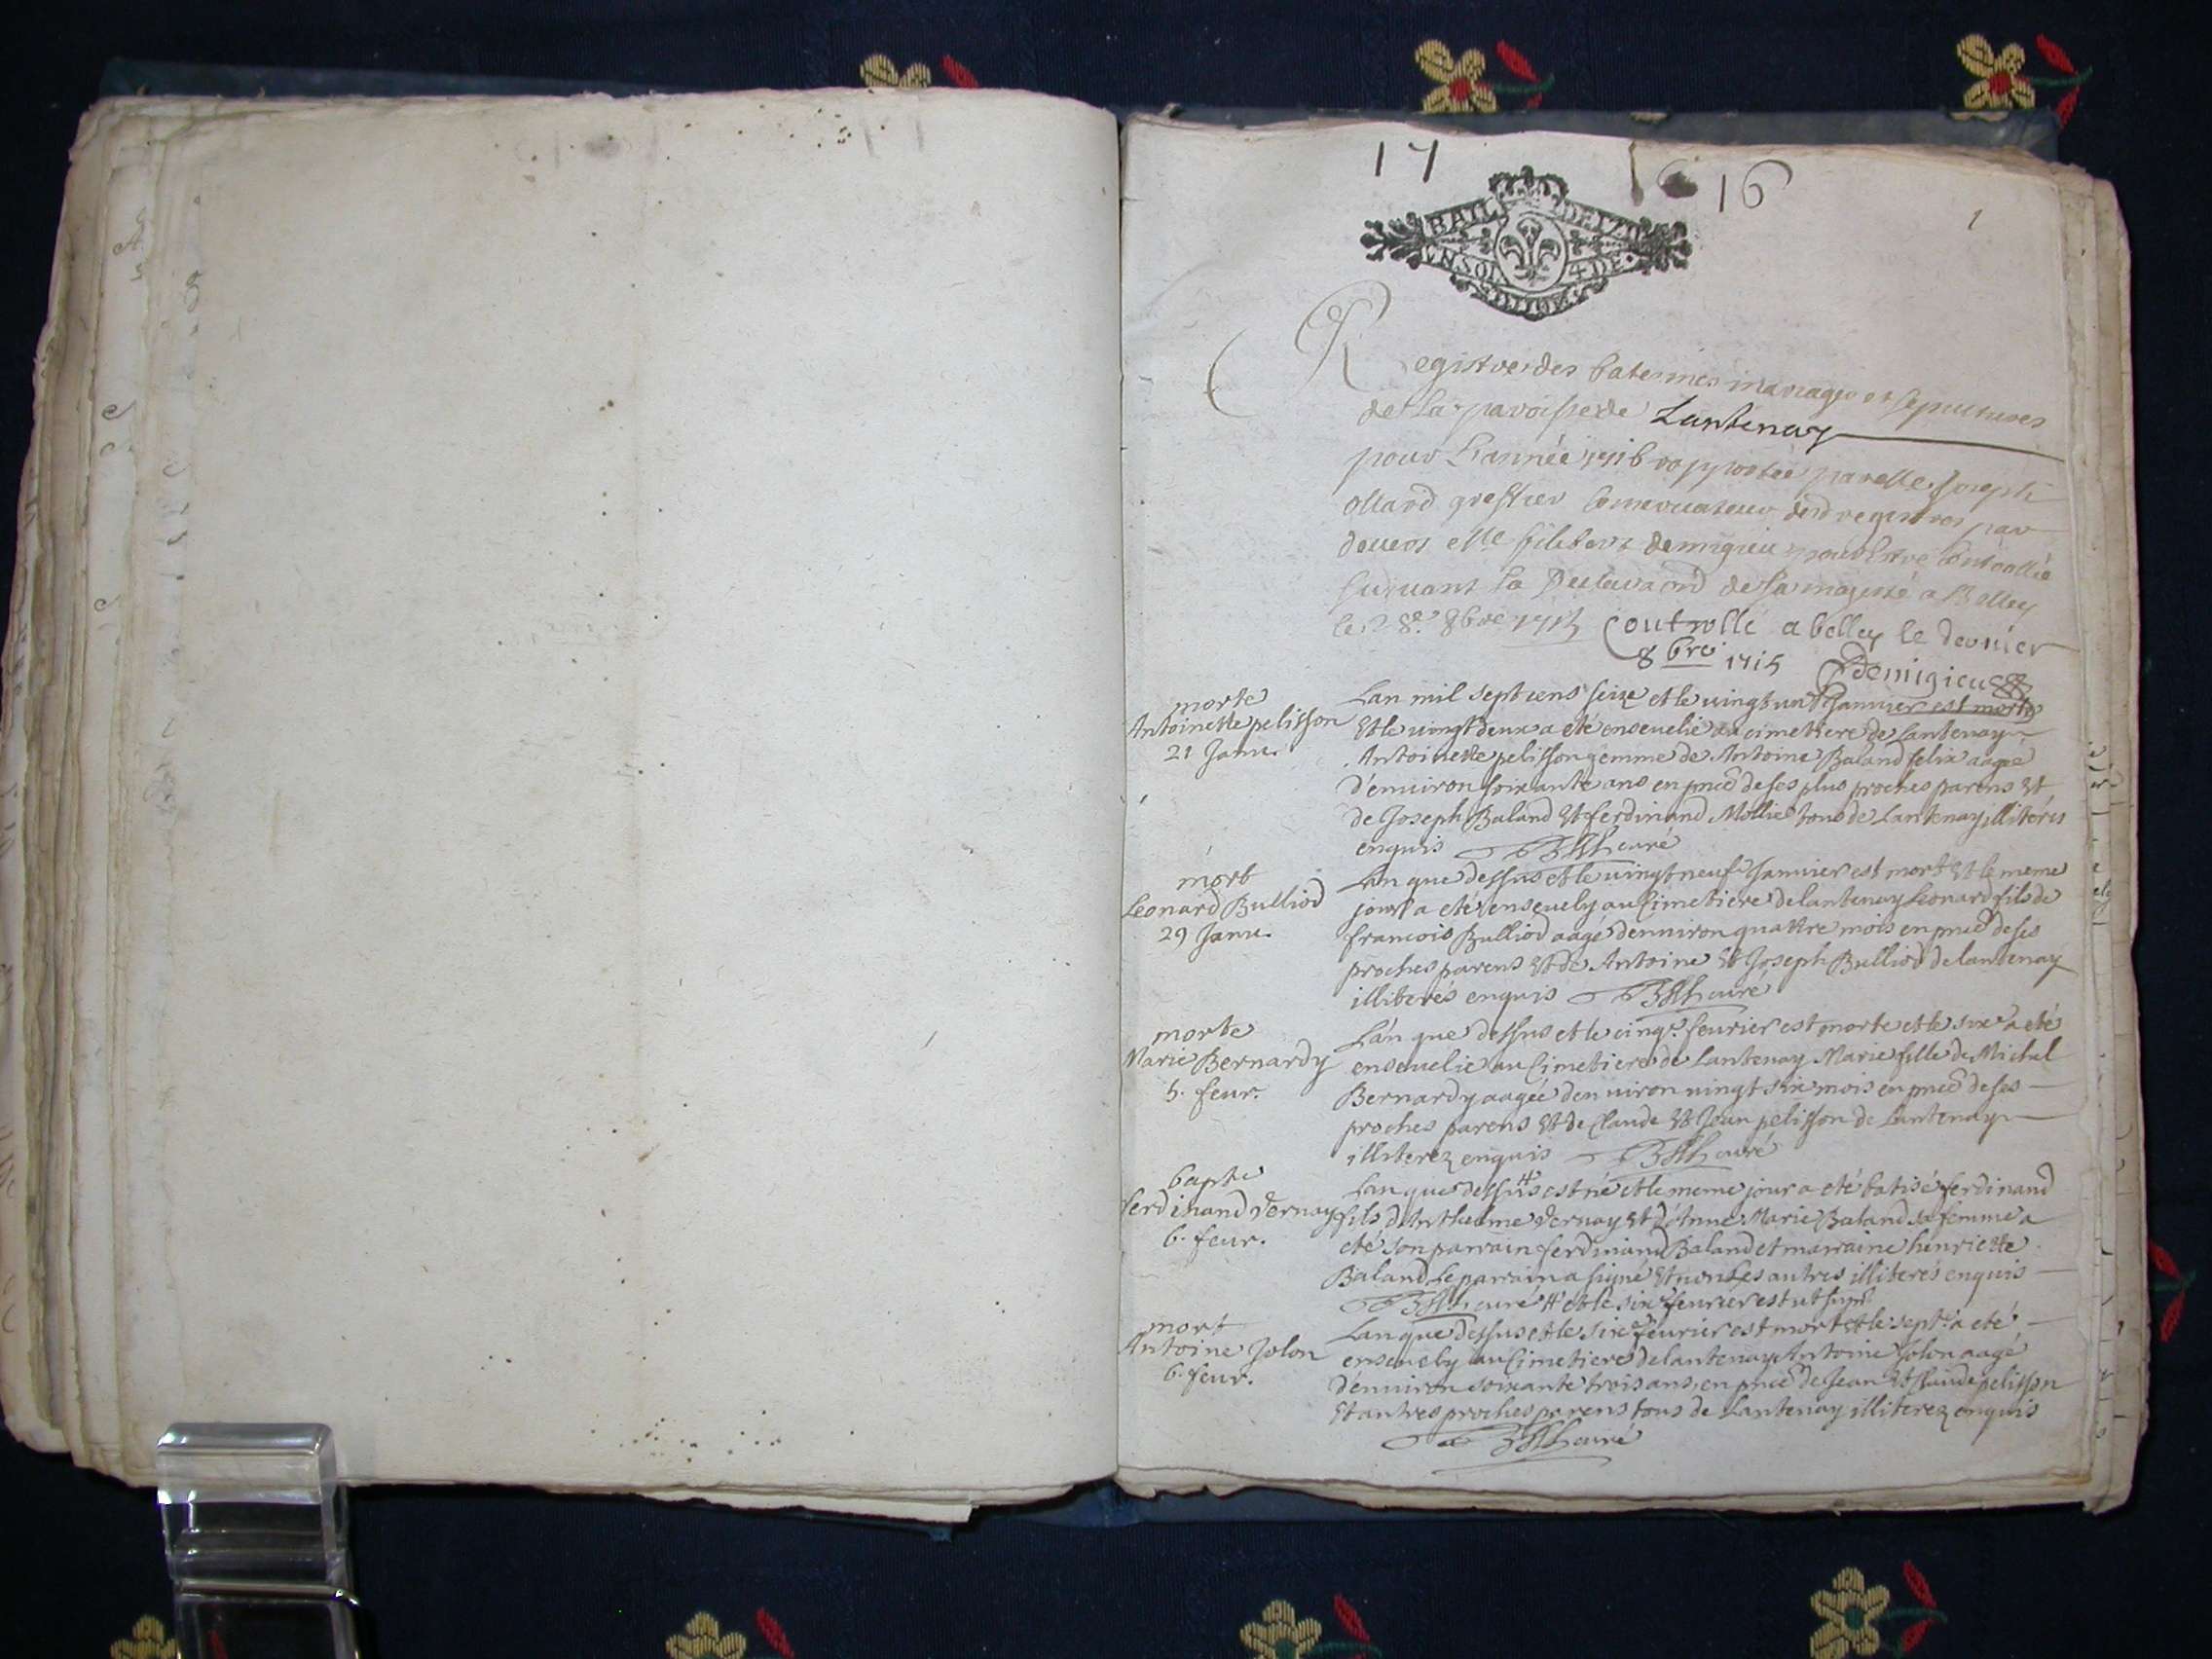 17 16 16
1
Registre des batesmes mariages et sepultures
de la paroisse de Lantenay
pour L'année 1716 rapportée par Me Joseph
Ollard greffier Conservateur desd registres par
devers Me filibert demigieu pour Estre Controllé
suivant la Declaraōn de sa majesté a Belley
le 28e 8bre 1715 Controllé a belley le dernier
8bre 1715 Demigieu
morte
Antoinette pelisson
21 Janv.
Lan mil sept cens seize et le vingt un Janvier est morte
Et le vingt deux a eté ensevelie au cimetiere de Lantenay
Antoinette pelisson femme de Antoine Baland felix aagée
d'environ soixante ans en pnce de ses plus proches parens Et
de Joseph Baland Et ferdinand Mollie tous de Lantenay illiterés
enquis curé
mort
Leonard Bulliod
29 Janv.
Lan que dessus et le vingt neuf Janvier est mort Et le meme
jour a eté ensevely au Cimetiere de lantenay Leonard fils de
francois Bulliod aagé denviron quattre mois en pnce de ses
proches parens Et de Antoine Et Joseph Bulliod de lantenay
illiterés enquis curé
morte
Marie Bernardy
5. fevr.
Lan que dessus et le cinqe fevrier est morte et le sixe a eté
ensevelie au Cimetiere de Lantenay Marie fille de Michel
Bernardy aagée denviron vingt six mois en pnce de ses
proches parens Et de Claude Et Jean pelisson de Lantenay
illiterez enquis curé
bapte
ferdinand Vernay
6. fevr.
Lan que dessus # est né et le meme jour a eté batisé ferdinand
fils d'Anthelme Vernay Et d'Anne Marie Baland sa femme a
eté son parrain ferdinand Baland et marraine henriette
Baland Le parrain a signé Et non Les autres illiterés enquis
curé # et le sixe fevrier est ut supr
mort
Antoine Jolon
6. fevr.
Lan que dessus et le sixe fevrier est mort Et le septe a eté
ensevely au Cimetiere de lantenay Antoine Jolon aagé
d'environ soixante trois ans, en pnce de Jean Et Claude pelisson
Et autres proches parens tous de Lantenay illiterez enquis
curé